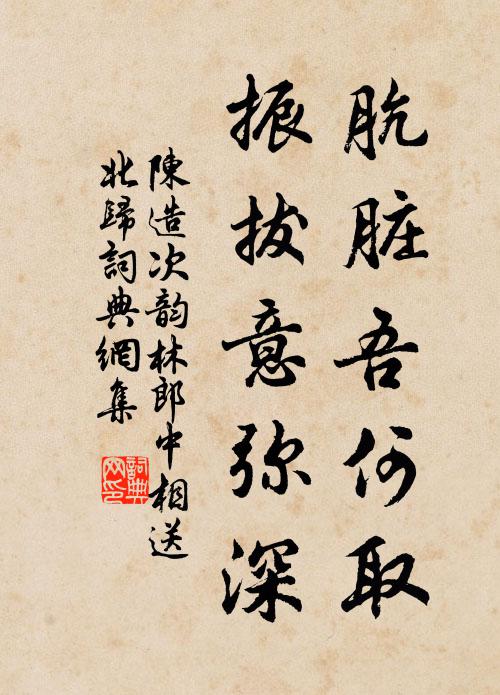 肮脏吾何取
振拔意弥深
陳造次韵林郎中相送
北歸詞典網集
詞典
网印